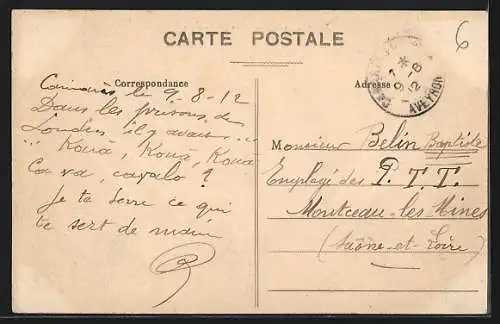 CARTE POSTALE
6
Correspondance
Adresse
AVEYRON
Camarès le 9-8-12
Dans les prisons de
Londres il y avait...
" Kouà, Kouà, Kouà
Ca va, cavalo ?
Je te serre ce qui
te sert de main
Monsieur Belin Baptiste
Employé des P.T.T.
Montceau-les-Mines
(Saône-et-Loire)